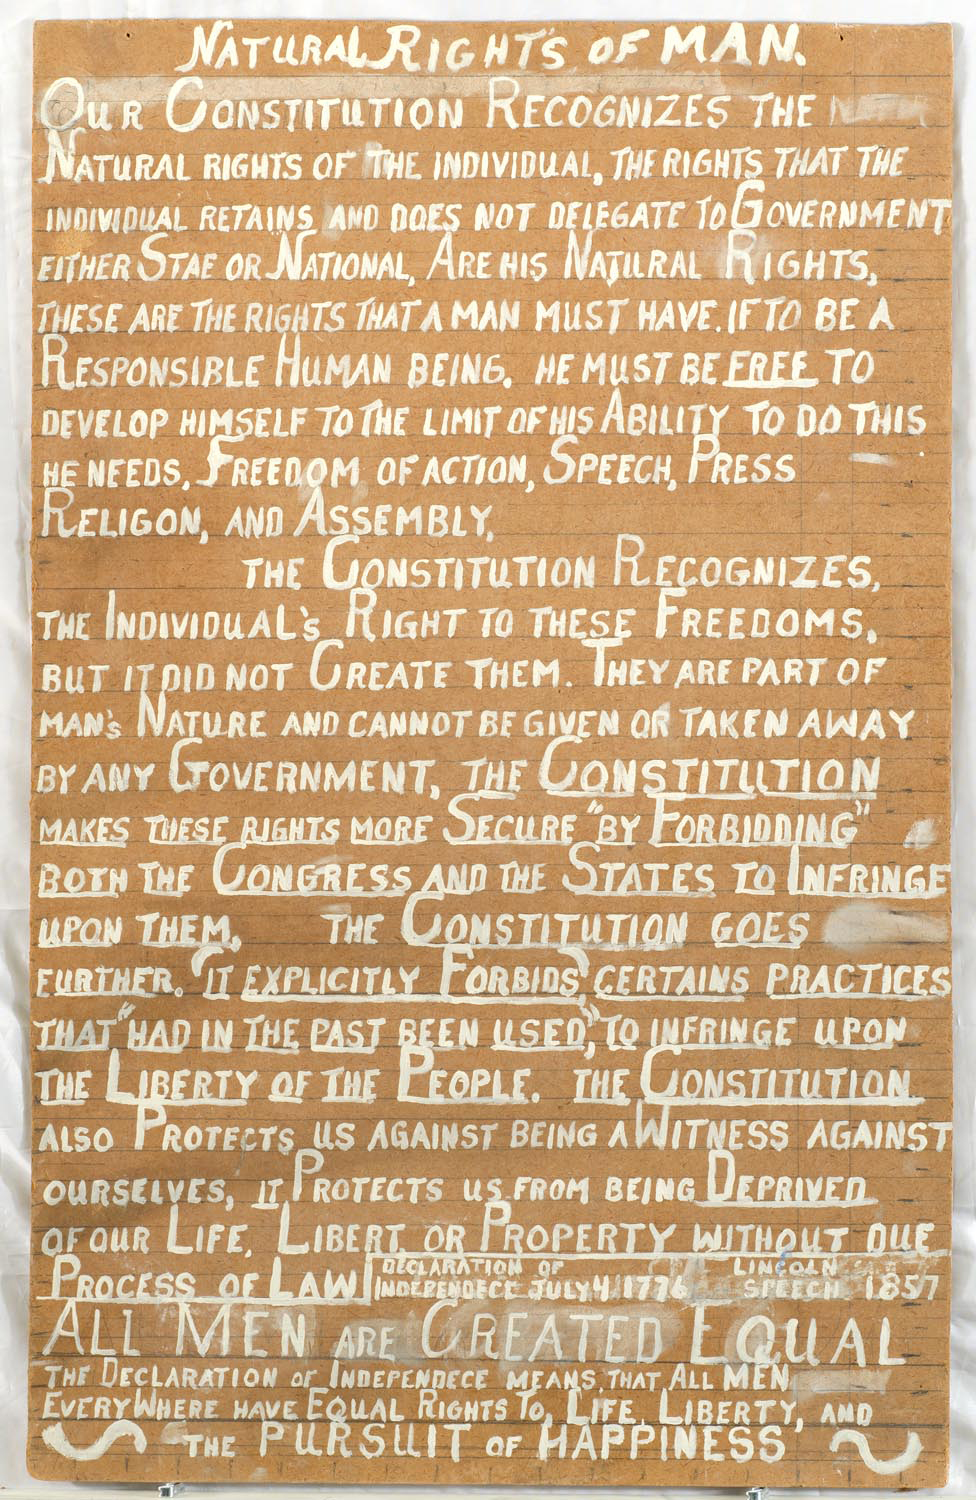 NATURAL RIGHT'S OF MAN.
OUR CONSTITUTION RECOGNIZES THE
NATURAL RIGHTS OF THE INDIVIDUAL, THE RIGHTS THAT THE
INDIVIDUAL RETAINS AND DOES NOT DELEGATE TO GOVERNMENT
EITHER STAE OR NATIONAL, ARE HIS NATURAL RIGHTS,
THESE ARE THE RIGHTS THAT A MAN MUST HAVE. IF TO BE A
RESPONSIBLE HUMAN BEING. HE MUST BE FREE TO
DEVELOP HIMSELF TO THE LIMIT OF HIS ABILITY TO DO THIS
HE NEEDS, FREEDOM OF ACTION, SPEECH, PRESS
RELIGON, AND ASSEMBLY,
THE CONSTITUTION RECOGNIZES,
THE INDIVIDUAL'S RIGHT TO THESE FREEDOMS,
BUT IT DID NOT CREATE THEM. THEY ARE PART OF
MAN'S NATURE AND CANNOT BE GIVEN OR TAKEN AWAY
BY ANY GOVERNMENT, THE CONSTITUTION
MAKES THESE RIGHTS MORE SECURE "BY FORBIDDING"
BOTH THE CONGRESS AND THE STATES TO INFRINGE
UPON THEM, THE CONSTITUTION GOES
FURTHER. "IT EXPLICITLY FORBIDS" CERTAINS PRACTICES
THAT "HAD IN THE PAST BEEN USED", TO INFRINGE UPON
THE LIBERTY OF THE PEOPLE. THE CONSTITUTION
ALSO PROTECTS US AGAINST BEING A WITNESS AGAINST
OURSELVES, IT PROTECTS US FROM BEING DEPRIVED
OF OUR LIFE, LIBERT, OR PROPERTY WITHOUT DUE
PROCESS OF LAW
DECLARATION OF LINCOLN
INDEPENDECE JULY 4 1776 SPEECH 1857
ALL MEN ARE CREATED EQUAL
THE DECLARATION OF INDEPENDECE MEANS THAT ALL MEN
EVERYWHERE HAVE EQUAL RIGHTS TO, LIFE, LIBERTY, AND
THE PURSUIT OF HAPPINESS